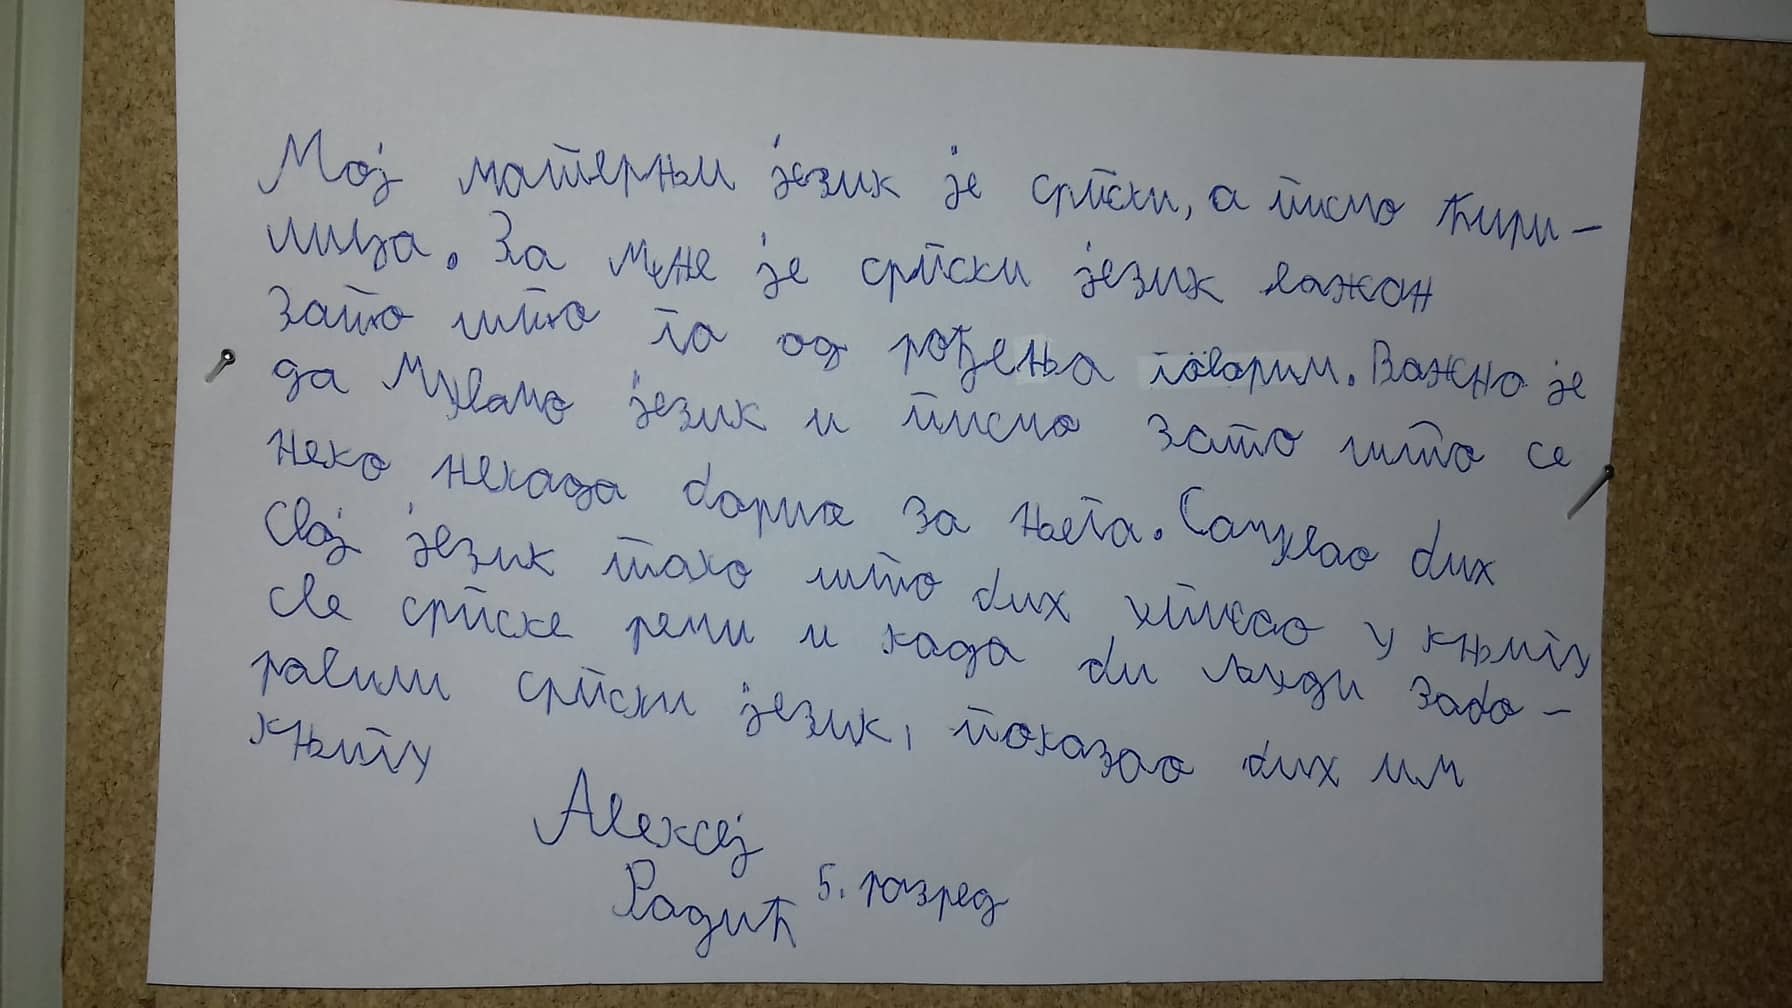 Мој матерњи језик је српски, а писмо ћири-
лица. За мене је српски језик важан
зато што га од рођења говорим. Важно је
да чувамо језик и писмо зато што се
неко некада борио за њега. Сачувао бих
свој језик тако што бих уписао у књигу
све српске речи и када би људи забо-
равили српски језик, показао бих им
књигу
Алексеј
Радић 5. разред